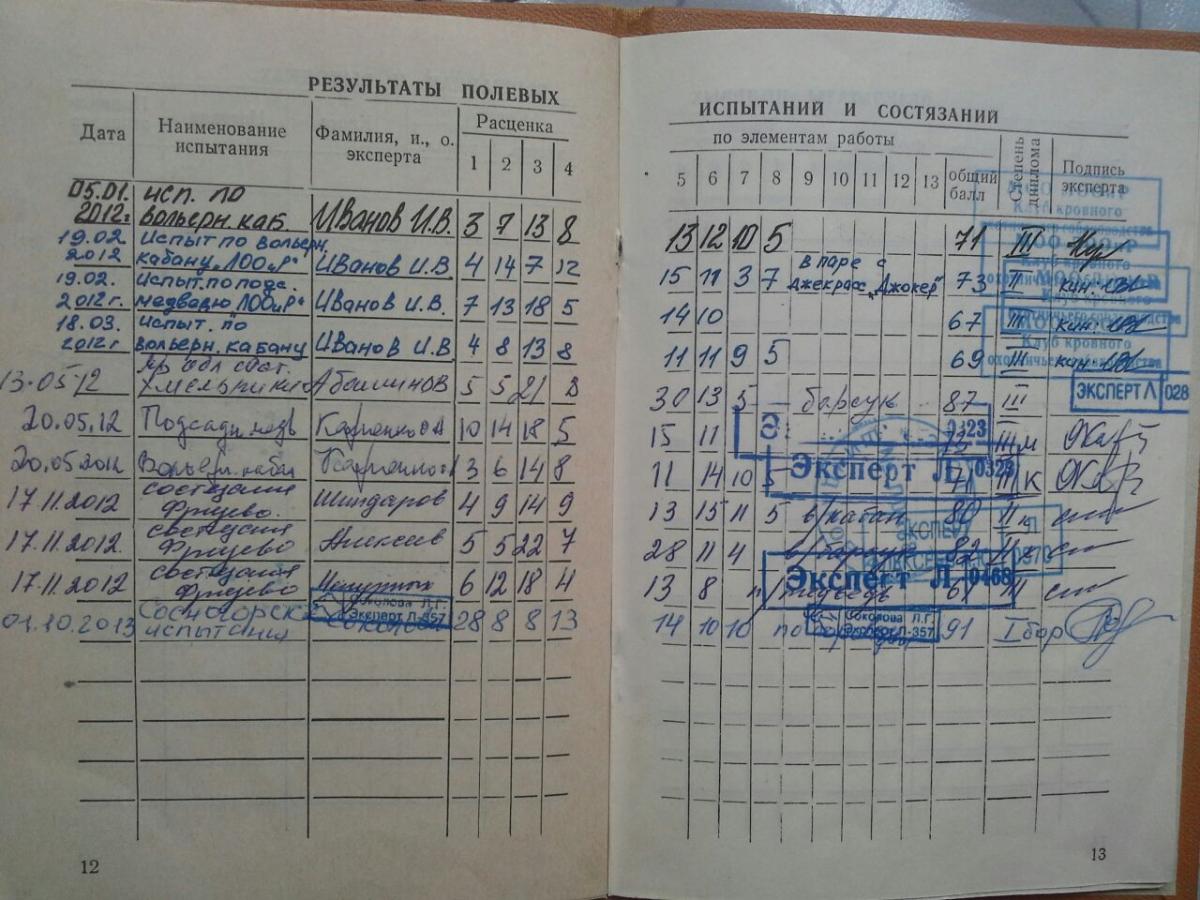 РЕЗУЛЬТАТЫ ПОЛЕВЫХ
Дата
Наименование испытания
Фамилия, и., о. эксперта
Расценка
1 2 3 4
05.01. исп. по
2012г. вольерн. каб. Иванов И.В. 3 7 13 8
19.02 Испыт по вольерн.
2012 кабану "ЛООиР" Иванов И.В. 4 14 7 12
19.02. Испыт. по подс.
2012г. медведю "ЛООиР" Иванов И.В. 7 13 18 5
18.03. Испыт. по
2012г вольерн. кабану Иванов И.В. 4 8 13 8
обл сост.
13.05.12 5 5 21 8
20.05.12 Подсадн. медв 10 14 18 5
20.05.2012 Вольерн. кабан 3 6 14 8
17.11.2012 состязания
Фряево. Шиндаров 4 9 14 9
17.11.2012. состязания
Фряево Алексеев 5 5 22 7
17.11.2012 состязания
Фряево 6 12 18 4
01.10.2013 Сосногорск
испытания Соколова Л.Г. Эксперт Л-357 28 8 8 13
12
ИСПЫТАНИЙ И СОСТЯЗАНИЙ
по элементам работы
5 6 7 8 9 10 11 12 13
общий балл
Степень диплома
Подпись эксперта
МООиР
Клуб кровного
13 12 10 5 71 III
15 11 3 7 в паре с
Джекрасс. "Джокер" 73 II
14 10 67 III
11 11 9 5 69 III
ЭКСПЕРТ Л 028
30 13 5 барсук 87 III
0323
15 11 72 III м
Эксперт Л 0323
11 14 10 5 71 III к
13 15 11 5 в/кабан 80 II к
ЭКСПЕРТ
28 11 4 в/барсук 82 II
Эксперт Л 0468
13 8 медведь 61 III
14 10 10 по 91 I бар
Соколова Л.Г.
Эксперт Л-357
13